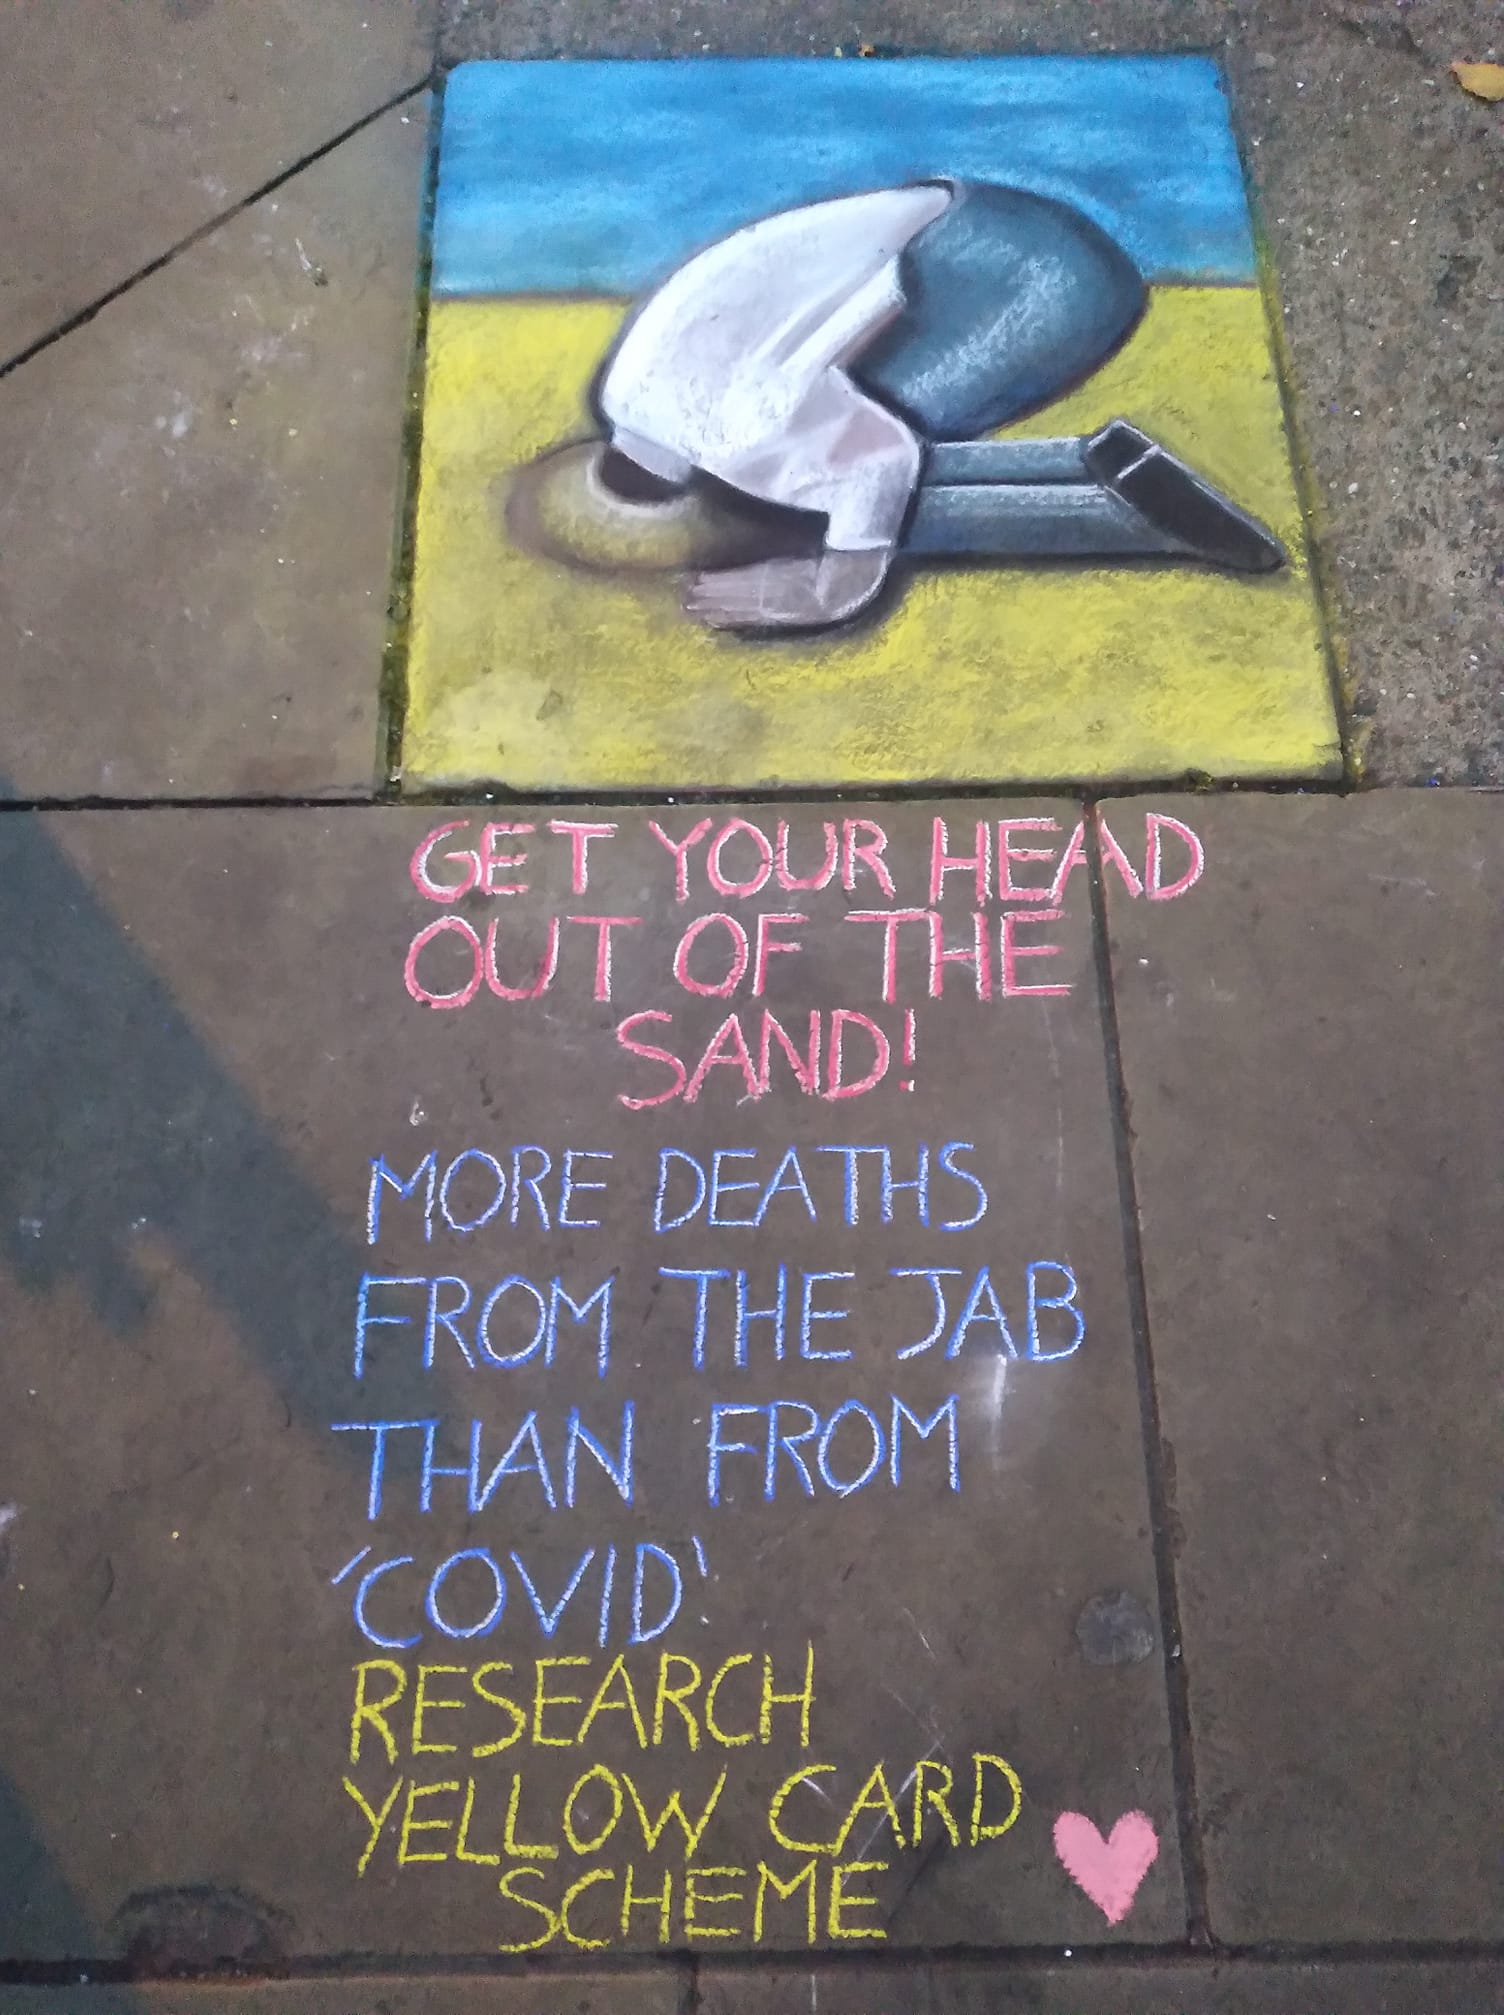 GET YOUR HEAD
OUT OF THE
SAND!
MORE DEATHS
FROM THE JAB
THAN FROM
'COVID'
RESEARCH
YELLOW CARD
SCHEME